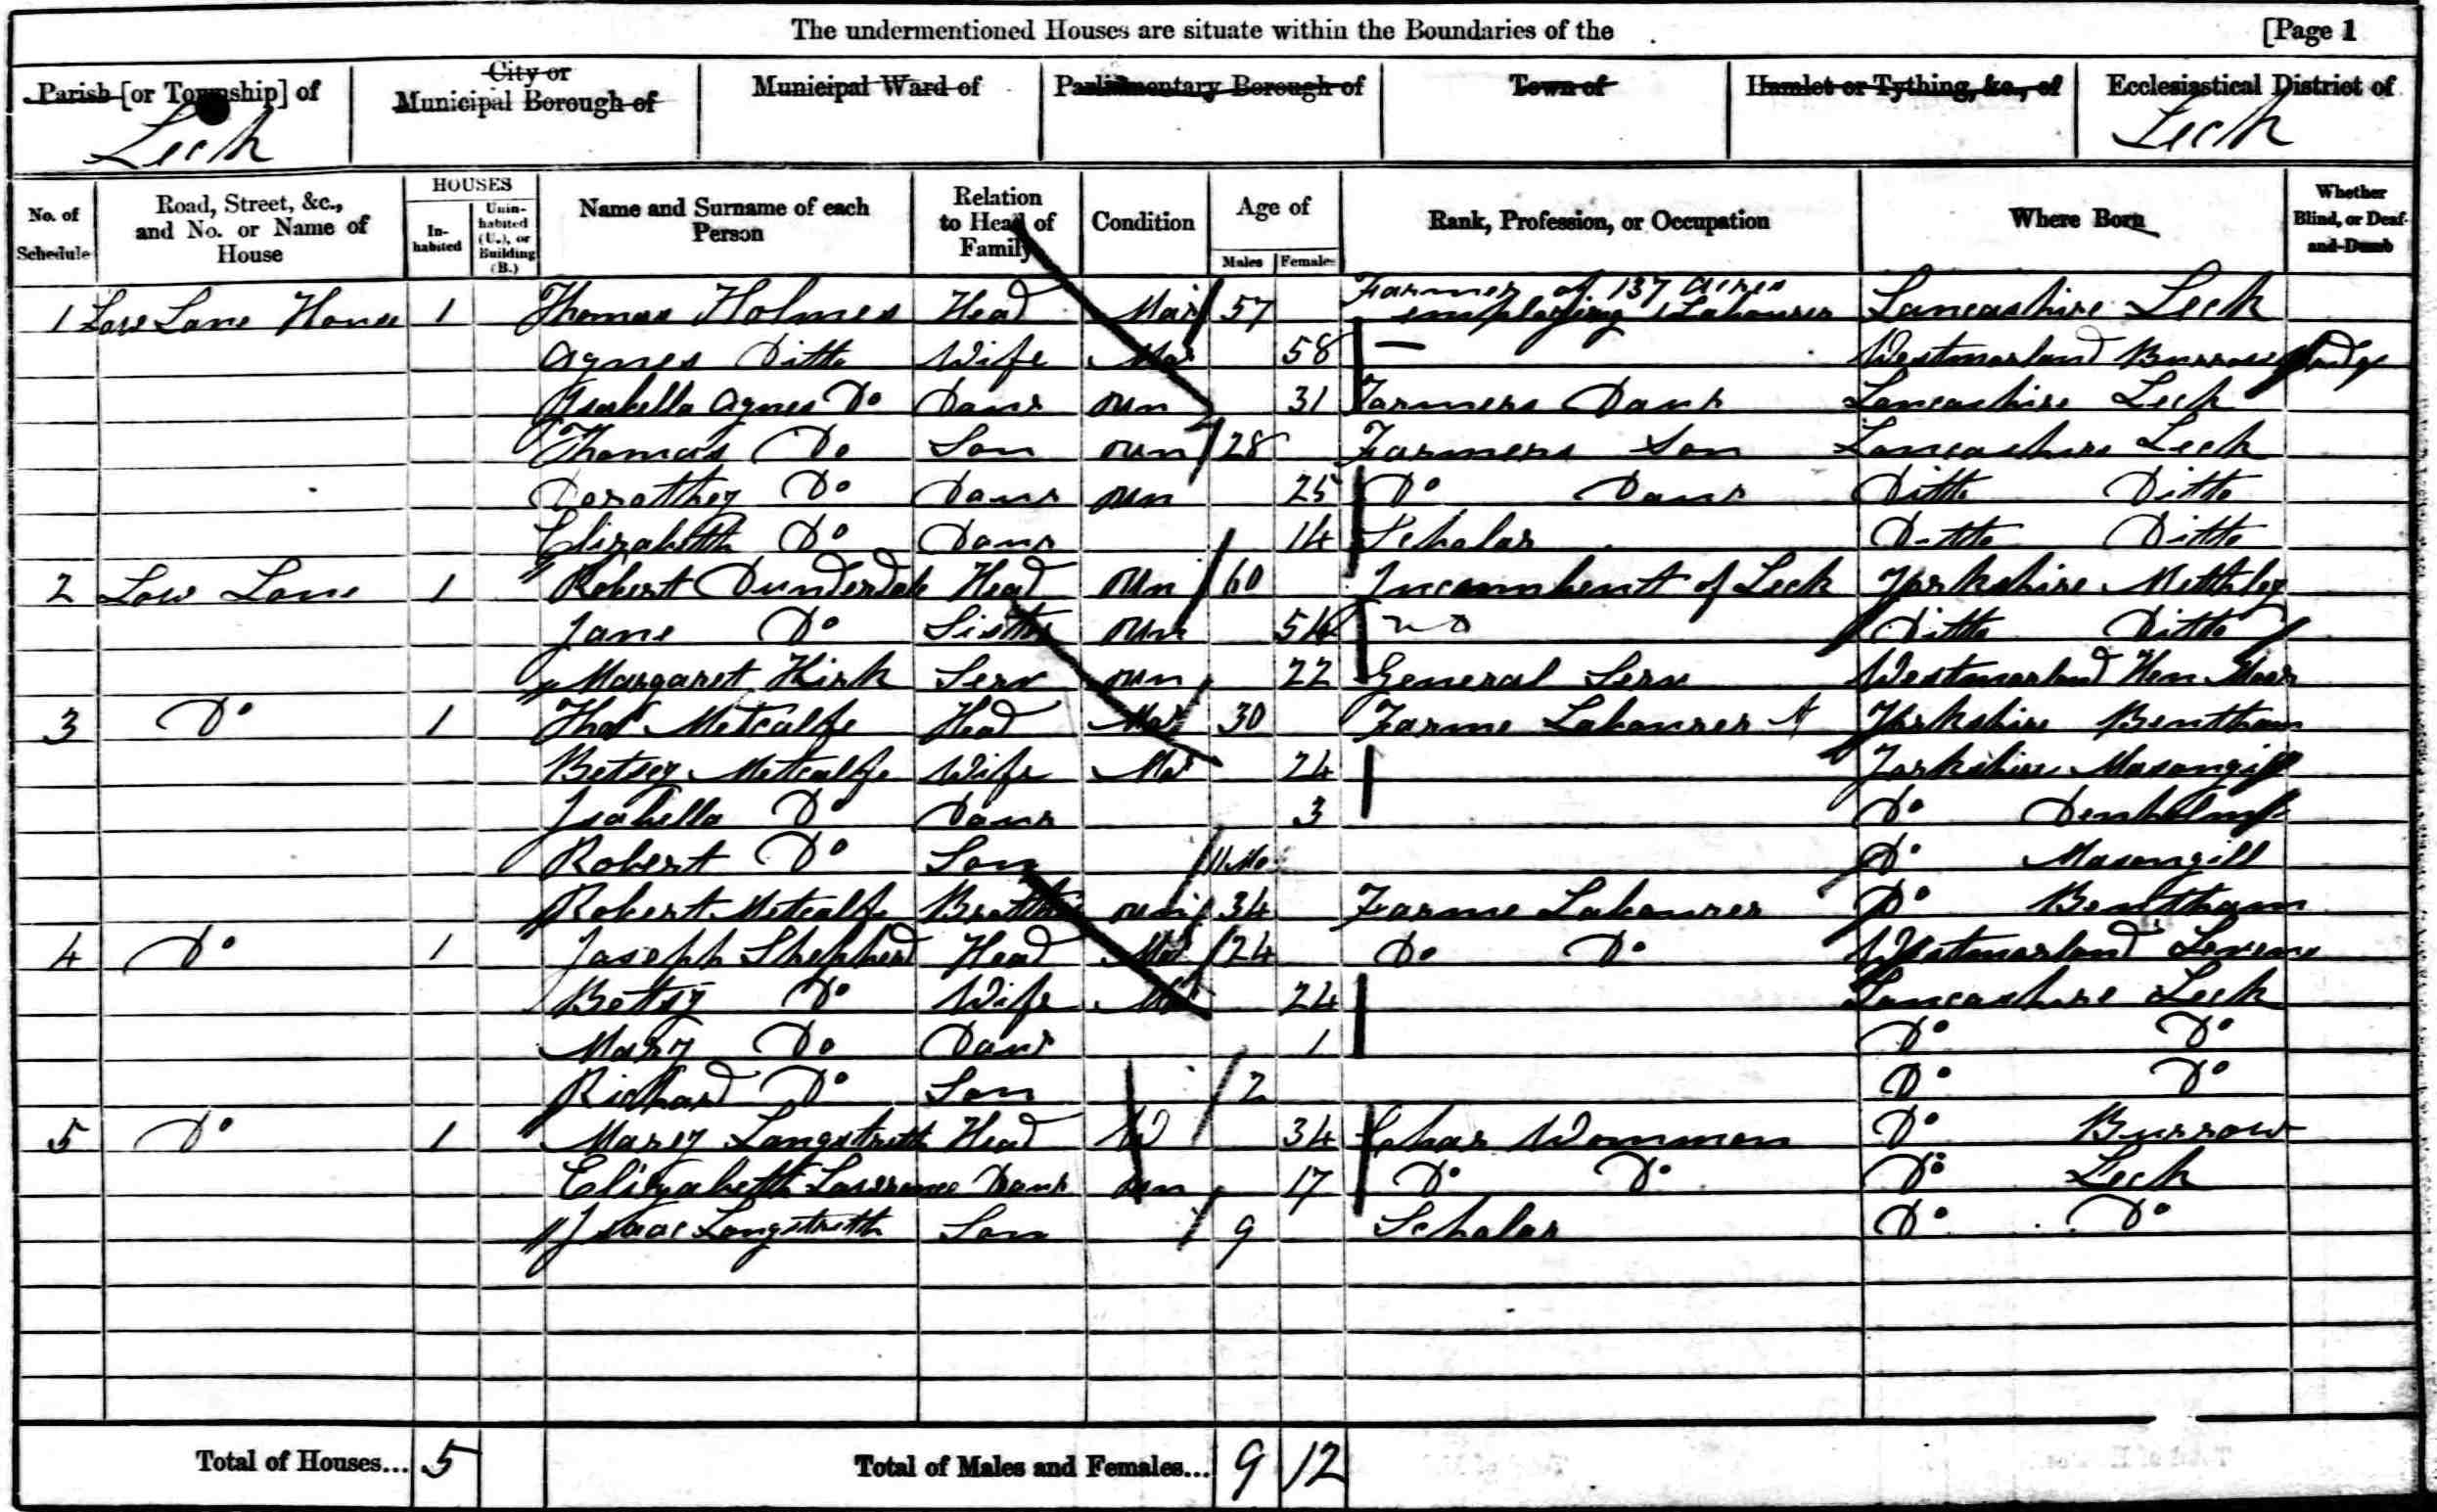 The undermentioned Houses are situate within the Boundaries of the [Page 1
Parish [or Township] of City or Municipal Borough of Municipal Ward of Parliamentary Borough of Town of Hamlet or Tything, &c., of Ecclesiastical District of
Leck Leck
No. of Schedule Road, Street, &c., and No. or Name of House HOUSES In-habited Unin-habited (U.), or Building (B.) Name and Surname of each Person Relation to Head of Family Condition Age of Males Females Rank, Profession, or Occupation Where Born Whether Blind, or Deaf-and-Dumb
1 Low Lane House 1 Thomas Holmes Head Mar 57 Farmer of 137 acres employing 1 Labourer Lancashire Leck
Agnes Ditto Wife Mar 58 — Westmorland Burrow
Isabella Agnes Do Daur un 31 Farmers Daur Lancashire Leck
Thomas Do Son un 28 Farmers Son Lancashire Leck
Dorothey Do Daur un 25 Do Daur Ditto Ditto
Elizabeth Do Daur 14 Scholar Ditto Ditto
2 Low Lane 1 Robert Dunderdale Head un 60 Incumbent of Leck Yorkshire Methley
Jane Do Sister un 54 no Ditto Ditto
Margaret Kirk Serv un 22 General Serv Westmorland
3 Do 1 Thos Metcalfe Head Mar 30 Farme Labourer Yorkshire Bentham
Betsey Metcalfe Wife Mar 24 Yorkshire Masongill
Isabella Do Daur 3 Do Denholme
Robert Do Son 11 Mo Do Masongill
Robert Metcalfe Brother un 34 Farme Labourer Do Bentham
4 Do 1 Joseph Shepherd Head Mar 24 Do Do Westmorland Levens
Betsy Do Wife Mar 24 Lancashire Leck
Mary Do Daur 1 Do Do
Richard Do Son 2 Do Do
5 Do 1 Marey Langstreth Head W 34 Do Burrow
Elizabeth Lawrance Daur un 17 Do Do Do Leck
Isaac Langstreth Son 9 Scholar Do Do
Total of Houses... 5 Total of Males and Females... 9 12